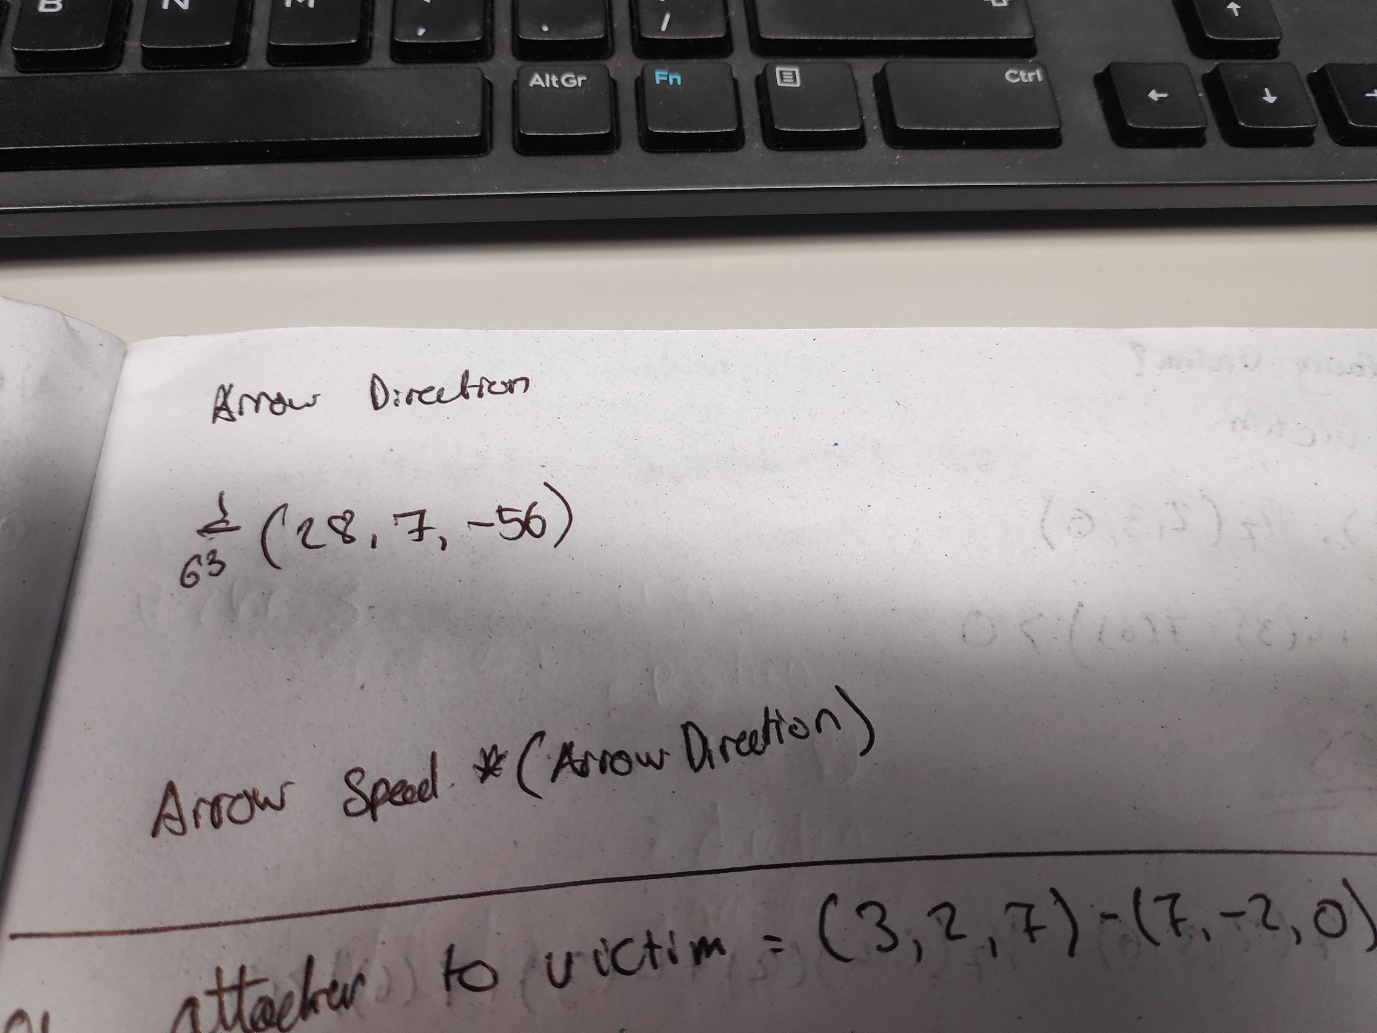 B N M , . /
AltGr Fn Ctrl
↑
← ↓ →
Arrow Direction
1
63 (28, 7, -56)
Arrow Speed * (Arrow Direction)
attacker to victim = (3, 2, 7) - (7, -2, 0)